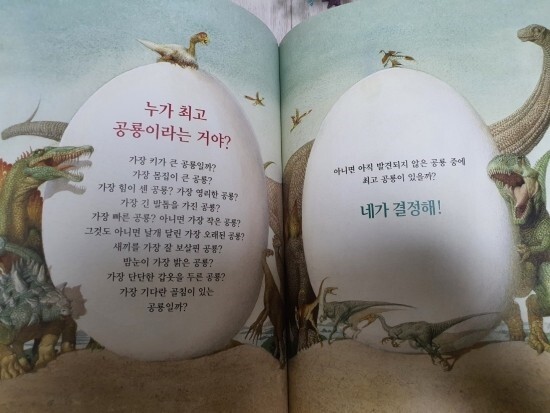 누가 최고
공룡이라는 거야?
가장 키가 큰 공룡일까?
가장 몸집이 큰 공룡?
가장 힘이 센 공룡? 가장 영리한 공룡?
가장 긴 발톱을 가진 공룡?
가장 빠른 공룡? 아니면 가장 작은 공룡?
그것도 아니면 날개 달린 가장 오래된 공룡?
새끼를 가장 잘 보살핀 공룡?
밤눈이 가장 밝은 공룡?
가장 단단한 갑옷을 두른 공룡?
가장 기다란 골침이 있는
공룡일까?
아니면 아직 발견되지 않은 공룡 중에
최고 공룡이 있을까?
네가 결정해!